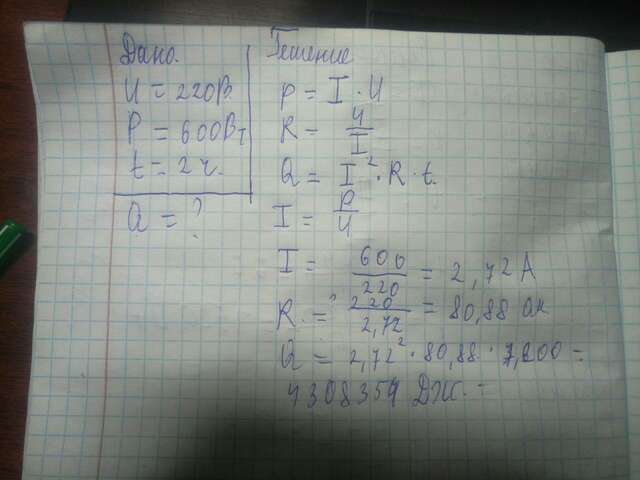 Дано.
U = 220В
P = 600Вт
t = 2 ч.
Q = ?
Решение
P = I · U
R = U/I
Q = I² · R · t.
I = P/U
I = 600/220 = 2,72 А
R = 220/2,72 = 80,88 Ом
Q = 2,72² · 80,88 · 7,200 =
4308354 Дж. =